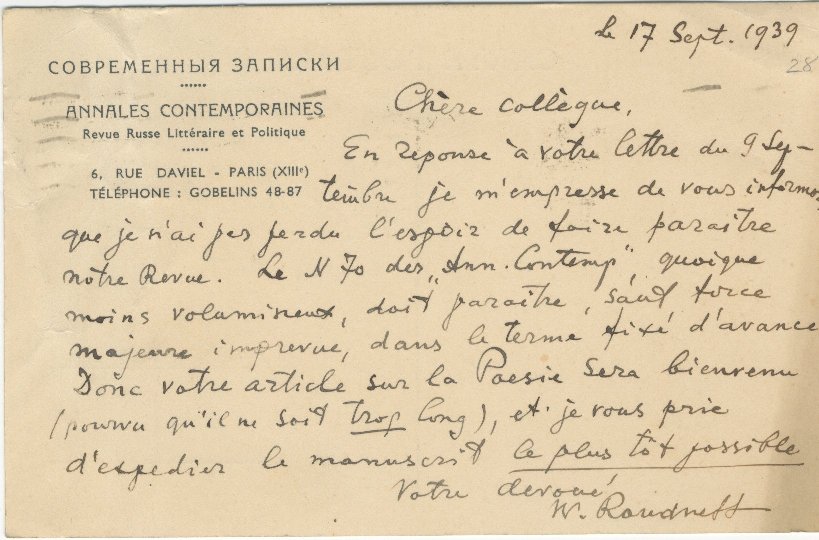 le 17 Sept. 1939
28
СОВРЕМЕННЫЯ ЗАПИСКИ
ANNALES CONTEMPORAINES
Revue Russe Littéraire et Politique
6, RUE DAVIEL - PARIS (XIIIe)
TÉLÉPHONE : GOBELINS 48-87
Chère collègue,
En reponse à votre lettre du 9 Sep-
tembre je m'empresse de vous informer
que je n'ai pas perdu l'espoir de faire paraître
notre Revue. Le N 70 des „Ann. Contemp", quoique
moins volumineux, doit paraître, sauf force
majeure imprevue, dans le terme fixé d'avance
Donc votre article sur la Poesie sera bienvenu
(pourvu qu'il ne soit trop long), et je vous prie
d'expedier le manuscrit le plus tôt possible
Votre devoué
W. Roudneff